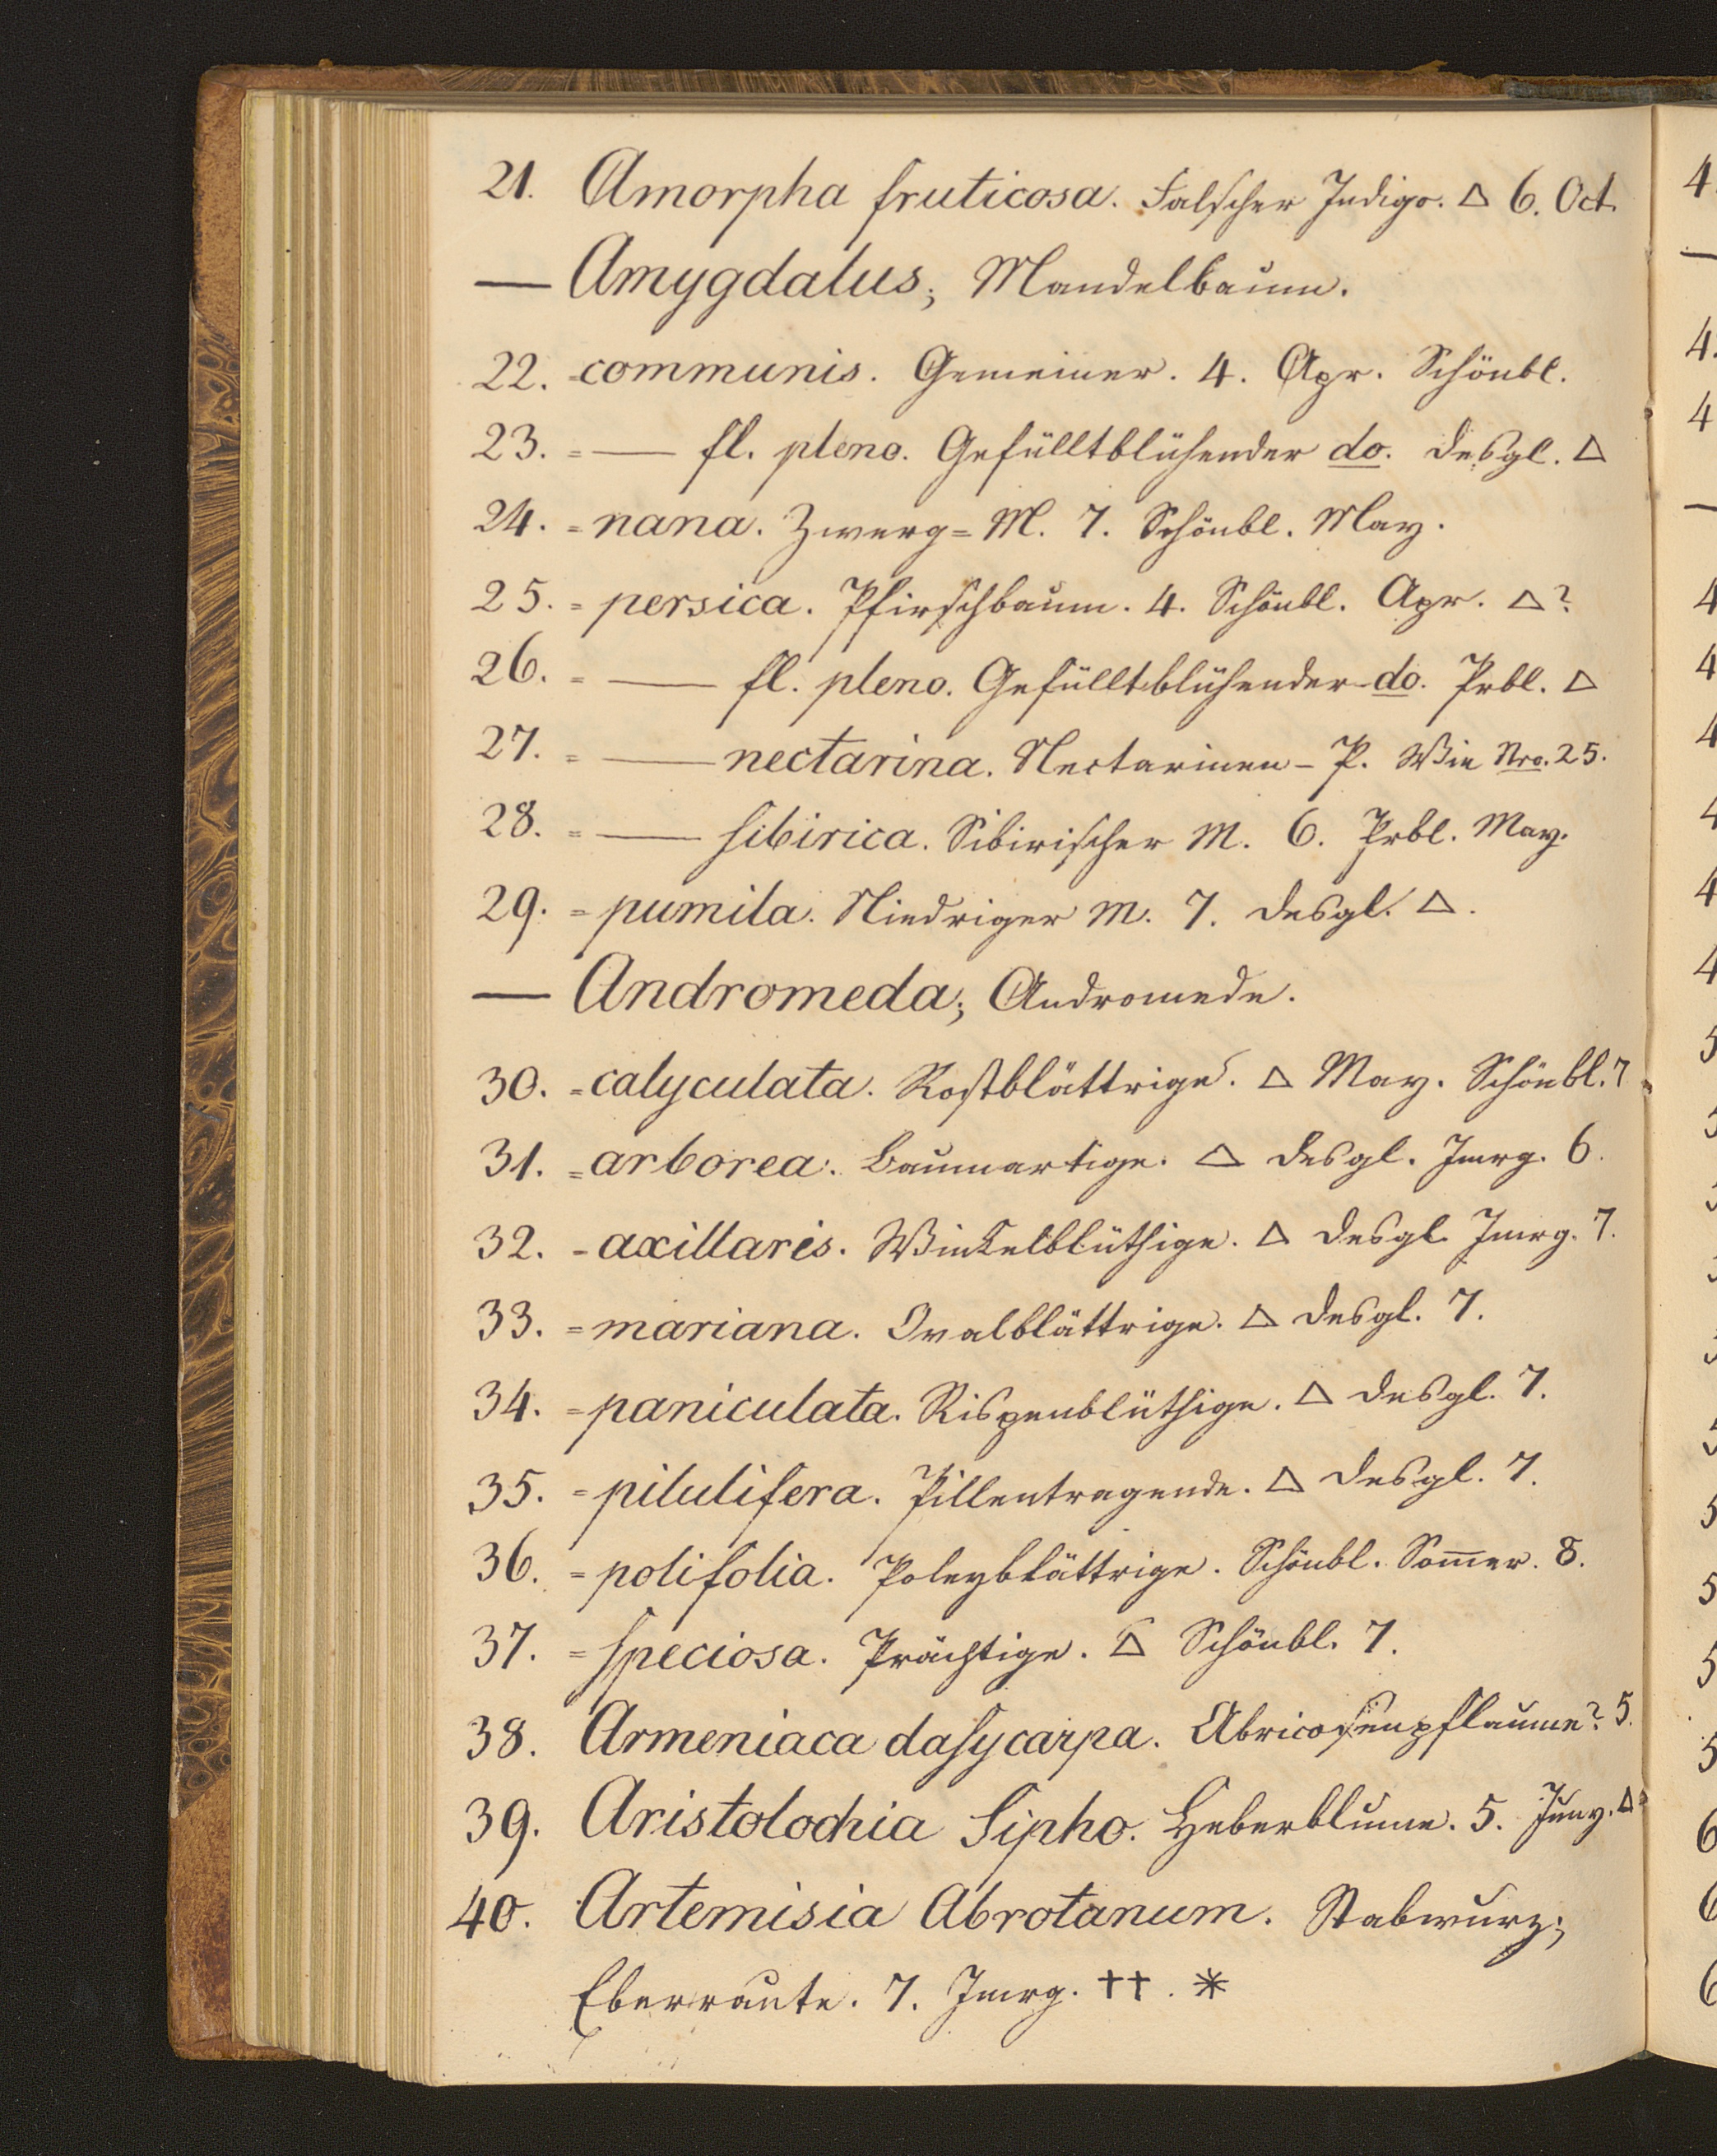 21. Amorpha fruticosa. Falscher Indigo. △ 6. Oct.
— Amygdalus; Mandelbaum.
22. =communis. Gemeiner. 4. Apr. Schönbl.
23. = — fl. pleno. Gefülltblühender do. desgl. △
24. = nana. Zwerg=M. 7. Schönbl. May.
25. = persica. Pfirschbaum. 4. Schönbl. Apr. △?
26. = — fl. pleno. Gefülltblühender do. Prbl. △
27. = — nectarina. Nectarinen-P. Wie Nro. 25.
28. = — sibirica. Sibirischer M. 6. Prbl. May.
29. = pumila. Niedriger M. 7. desgl. △.
— Andromeda; Andromede.
30. =calyculata. Rostblättrige. △ May. Schönbl. 7
31. =arborea. Baumartige. △ desgl. Jmrg. 6.
32. =axillaris. Winkelblüthige. △ desgl. Jmrg. 7.
33. =mariana. Ovalblättrige. △ desgl. 7.
34. =paniculata. Rispenblüthige. △ desgl. 7.
35. =pilulifera. Pillentragende. △ desgl. 7.
36. =polifolia. Poleyblättrige. Schönbl. Som̅er. 8.
37. =speciosa. Prächtige. △ Schönbl. 7.
38. Armeniaca dasycarpa. Abricosenpflaume? 5.
39. Aristolochia Sipho. Heberblume. 5. Juny. △
40. Artemisia Abrotanum. Stabwurz;
Eberraute. 7. Jmrg. ††. *